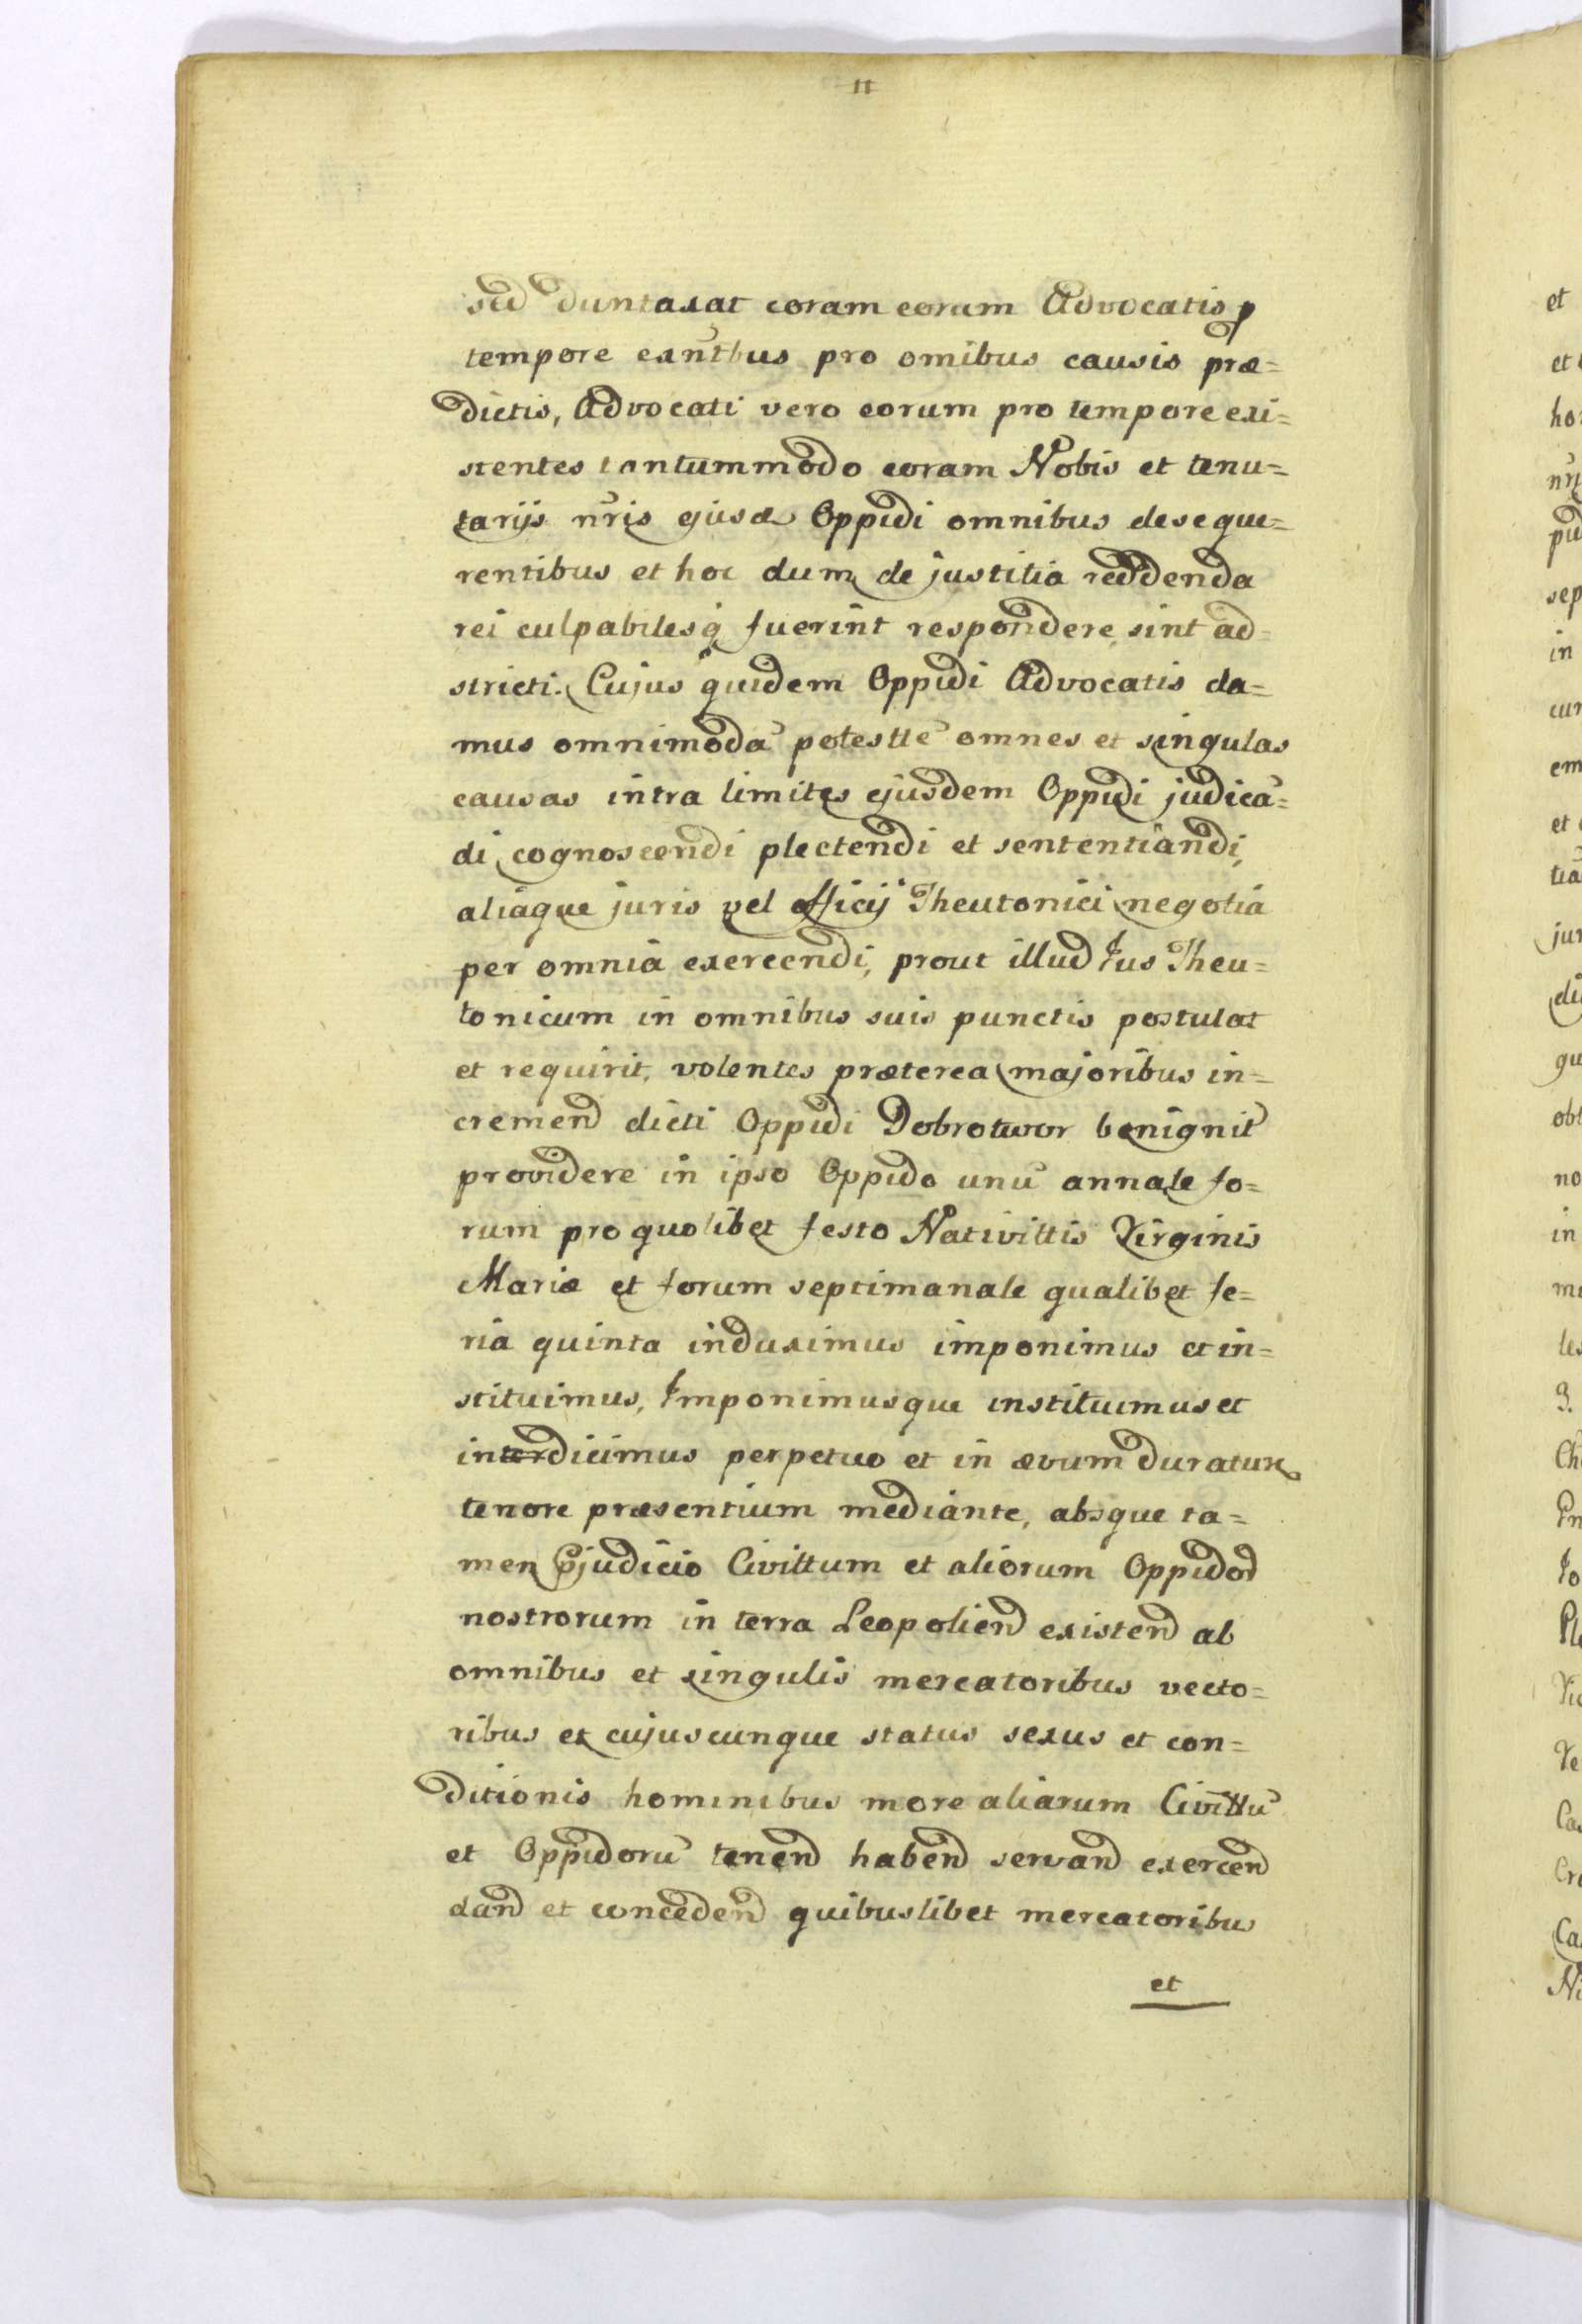 11
sed duntaxat coram eorum Advocatis p
tempore exñtbus pro omibus causis præ=
dictis, Advocati vero eorum pro tempore exi=
stentes tantummodo coram Nobis et tenu=
tarijs ñris ejusd Oppidi omnibus de se que=
rentibus et hoc dum de justitia reddenda
rei culpabilesq̃ fuerint respondere sint ad=
stricti. Cujus quidem Oppidi Advocatis da=
mus omnimodã potesttẽ omnes et singulas
causas intra limites ejusdem Oppidi judicã=
di cognoscendi plectendi et sententiandi,
aliaque juris vel officij Theutonici negotia
per omnia exercendi, prout illud Jus Theu=
tonicum in omnibus suis punctis postulat
et requirit, volentes præterea majoribus in=
cremend dicti Oppidi Dobrotwor benignit
providere in ipso Oppido unũ annale fo=
rum pro quolibet festo Nativittis Virginis
Mariæ et forum septimanale qualibet fe=
ria quinta induximus imponimus et in=
stituimus, Imponimusque instituimus et
interdicimus perpetuo et in ævum duratur
tenore præsentium mediante, absque ta=
men pjudicio Civittum et aliorum Oppidod
nostrorum in terra Leopoliend existend ab
omnibus et singulis mercatoribus vecto=
ribus et cujuscunque status sexus et con=
ditionis hominibus more aliarum Civittũ
et Oppidorũ tenend habend servand exercend
dand et concedend quibuslibet mercatoribus
et